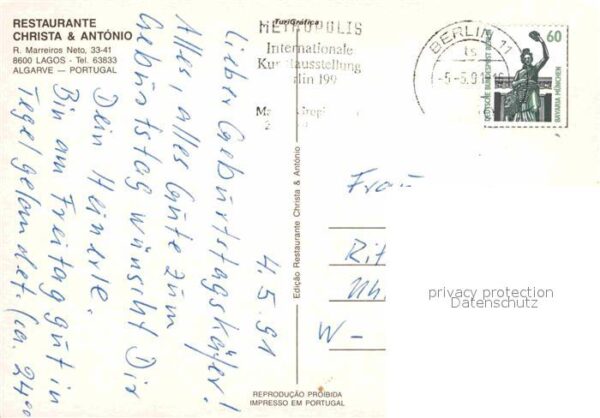 RESTAURANTE
CHRISTA & ANTÓNIO
R. Marreiros Neto, 33-41
8600 LAGOS - Tel. 63833
ALGARVE — PORTUGAL
TuriGráfica
METROPOLIS
Internationale
Kunstausstellung
Berlin 199
BERLIN 11
ts
-5-5.91
60
DEUTSCHE BUNDESPOST BERLIN
BAVARIA MÜNCHEN
4.5.91
Lieber Geburtstagskäfer!
Alles, alles Gute zum
Geburtstag wünscht Dir
Dein Heinerle.
Bin am Freitag gut in
Tegel gelandet. (ca. 24⁰⁰
Edição Restaurante Christa & António
Frau
Rit
W -
privacy protection
Datenschutz
REPRODUÇÃO PROIBIDA
IMPRESSO EM PORTUGAL